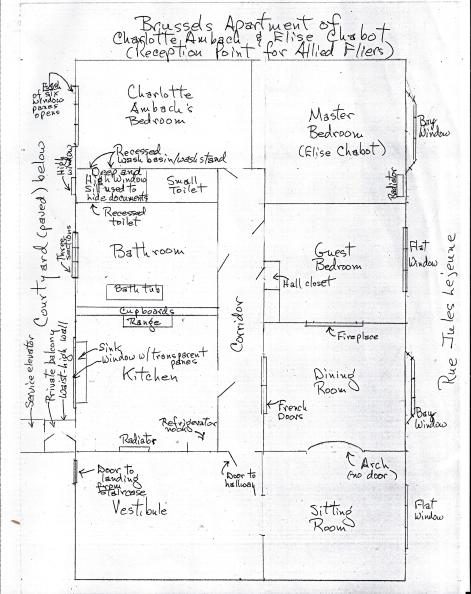 Brussels Apartment of
Charlotte Ambach & Elise Chabot
(Reception Point for Allied Fliers)
of six
window
panes
opens
Charlotte
Ambach's
Bedroom
Master
Bedroom
(Elise Chabot)
Bay
Window
Radiator
High
window
Recessed
wash basin/washstand
Deep and
High Window
Sill used to
hide documents
Small
Toilet
Recessed
toilet
Courtyard (paved) below
Three
sections
Bathroom
Bath tub
Cupboards
Range
Corridor
Guest
Bedroom
Hall closet
Flat
Window
Rue Jules Lejeune
Fireplace
Service elevator
Private balcony
Waist-high wall
Sink
Window w/transparent
panes
Kitchen
Refrigerator
nook
Radiator
Dining
Room
French
Doors
Bay
Window
Door to
landing
from
staircase
Vestibule
Door to
hallway
Arch
(no door)
Sitting
Room
Flat
Window